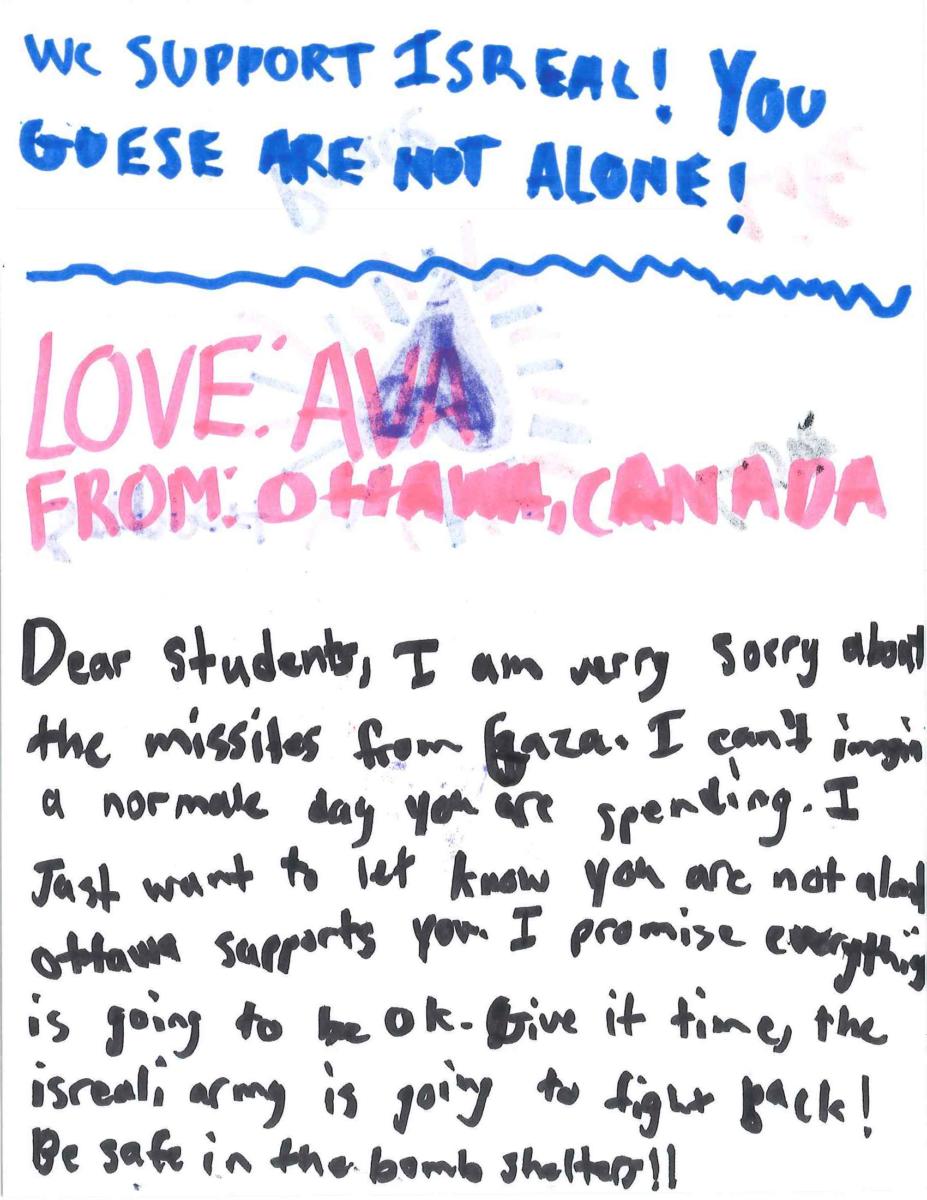 We SUPPORT ISREAL! YOU
GUESE ARE NOT ALONE!
LOVE: AVA
FROM: OTTAWA, CANADA
Dear students, I am verry sorry about
the missiles from Gaza. I can't imagin
a normale day you are spending. I
Just want to let know you are not
ottawa supports you. I promise everything
is going to be ok. Give it time, the
isreali army is going to fight back!
Be safe in the bomb shelters!!